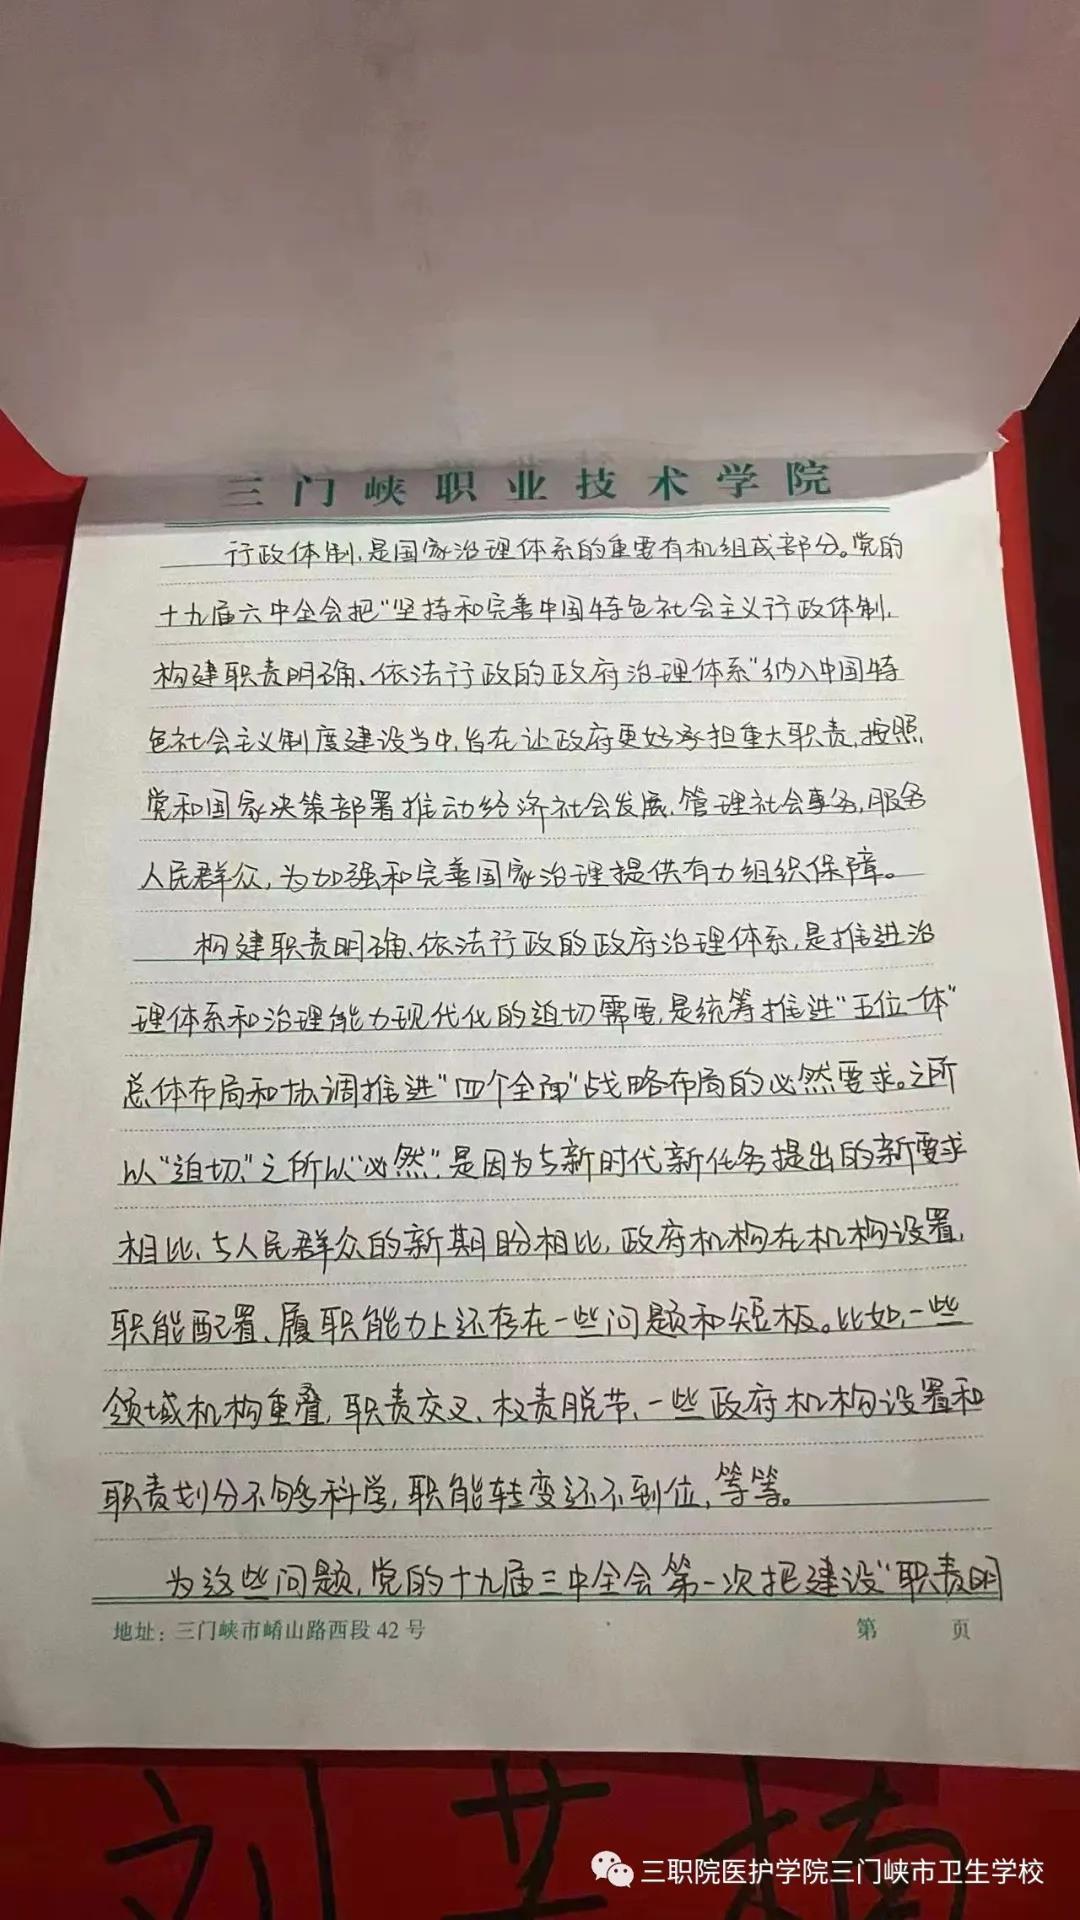 三门峡职业技术学院
行政体制,是国家治理体系的重要有机组成部分。党的
十九届六中全会把“坚持和完善中国特色社会主义行政体制,
构建职责明确、依法行政的政府治理体系”纳入中国特
色社会主义制度建设当中,旨在让政府更好承担重大职责,按照
党和国家决策部署推动经济社会发展,管理社会事务,服务
人民群众,为加强和完善国家治理提供有力组织保障。
构建职责明确、依法行政的政府治理体系,是推进治
理体系和治理能力现代化的迫切需要,是统筹推进“五位一体”
总体布局和协调推进“四个全面”战略布局的必然要求。之所
以“迫切”、之所以“必然”,是因为与新时代新任务提出的新要求
相比、与人民群众的新期盼相比,政府机构在机构设置,
职能配置、履职能力上还存在一些问题和短板。比如,一些
领域机构重叠,职责交叉、权责脱节,一些政府机构设置和
职责划分不够科学,职能转变还不到位,等等。
为这些问题,党的十九届三中全会第一次把建设“职责明
地址:三门峡市崤山路西段42号 第 页
刘艺楠
三职院医护学院三门峡市卫生学校